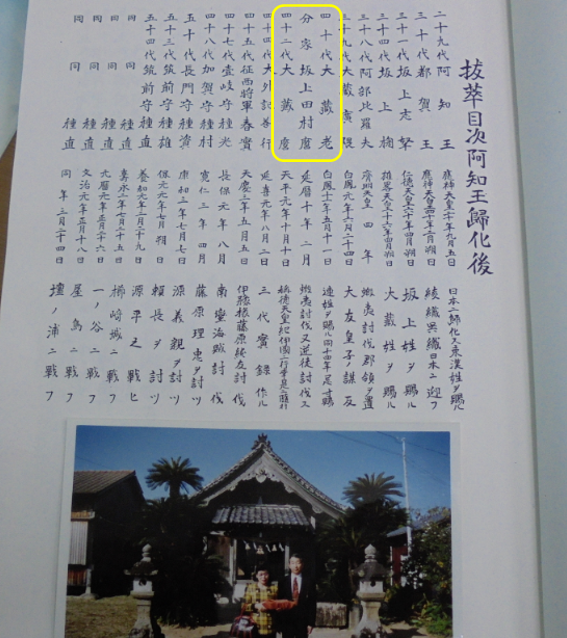 拔萃目次阿知王歸化後
二十九代阿知王 應神天皇二十年九月五日 日本ニ歸化ス東漢姓ヲ賜ル
三十代都賀王 應神天皇四十一年二月朔日 綾織呉織日本ニ迎フ
三十一代坂上志拏 仁德天皇六十年四月朔日 坂上姓ヲ賜ル
三十四代坂上楠 雄畧天皇十六年四月朔日 大蔵姓ヲ賜ル
三十八代阿部比羅夫 齊明天皇四年 蝦夷討伐郡領ヲ置
三十九代大蔵廣隈 白鳳元年六月二十四日 大友皇子ノ謀反
四十代大蔵老 白鳳十一年五月十一日 連姓ヲ賜ル同十四年忌寸賜
分家坂上田村麿 延暦十年二月 蝦夷討伐又逆徒討伐ス
四十二代大蔵麿 天平元年十月十日
四十四代大外記善行 延喜元年八月二日 三代實錄作ル
四十五代征西将軍春實 天慶三年五月五日 伊豫椽藤原純友討伐
四十七代壹岐守種光 長保元年八月 南蠻海賊討伐
四十八代加賀守種村 寛仁三年四月 藤原理忠ヲ討ツ
五十代長門守種資 康和三年七月七日 源義親ヲ討ツ
五十三代筑前守種雄 保元元年七月朔日 頼長ヲ討ツ
五十四代筑前守種直 養和元年二月二十九日 源平之戰ヒ
同同種直 壽永二年七月二十五日 ﻿城ニ戰フ
同同種直 元暦元年正月二十六日 一ノ谷ニ戰フ
同同種直 文治元年正月十八日 屋島ニ戰フ
同同種直 同年三月二十四日 壇ノ浦ニ戰フ